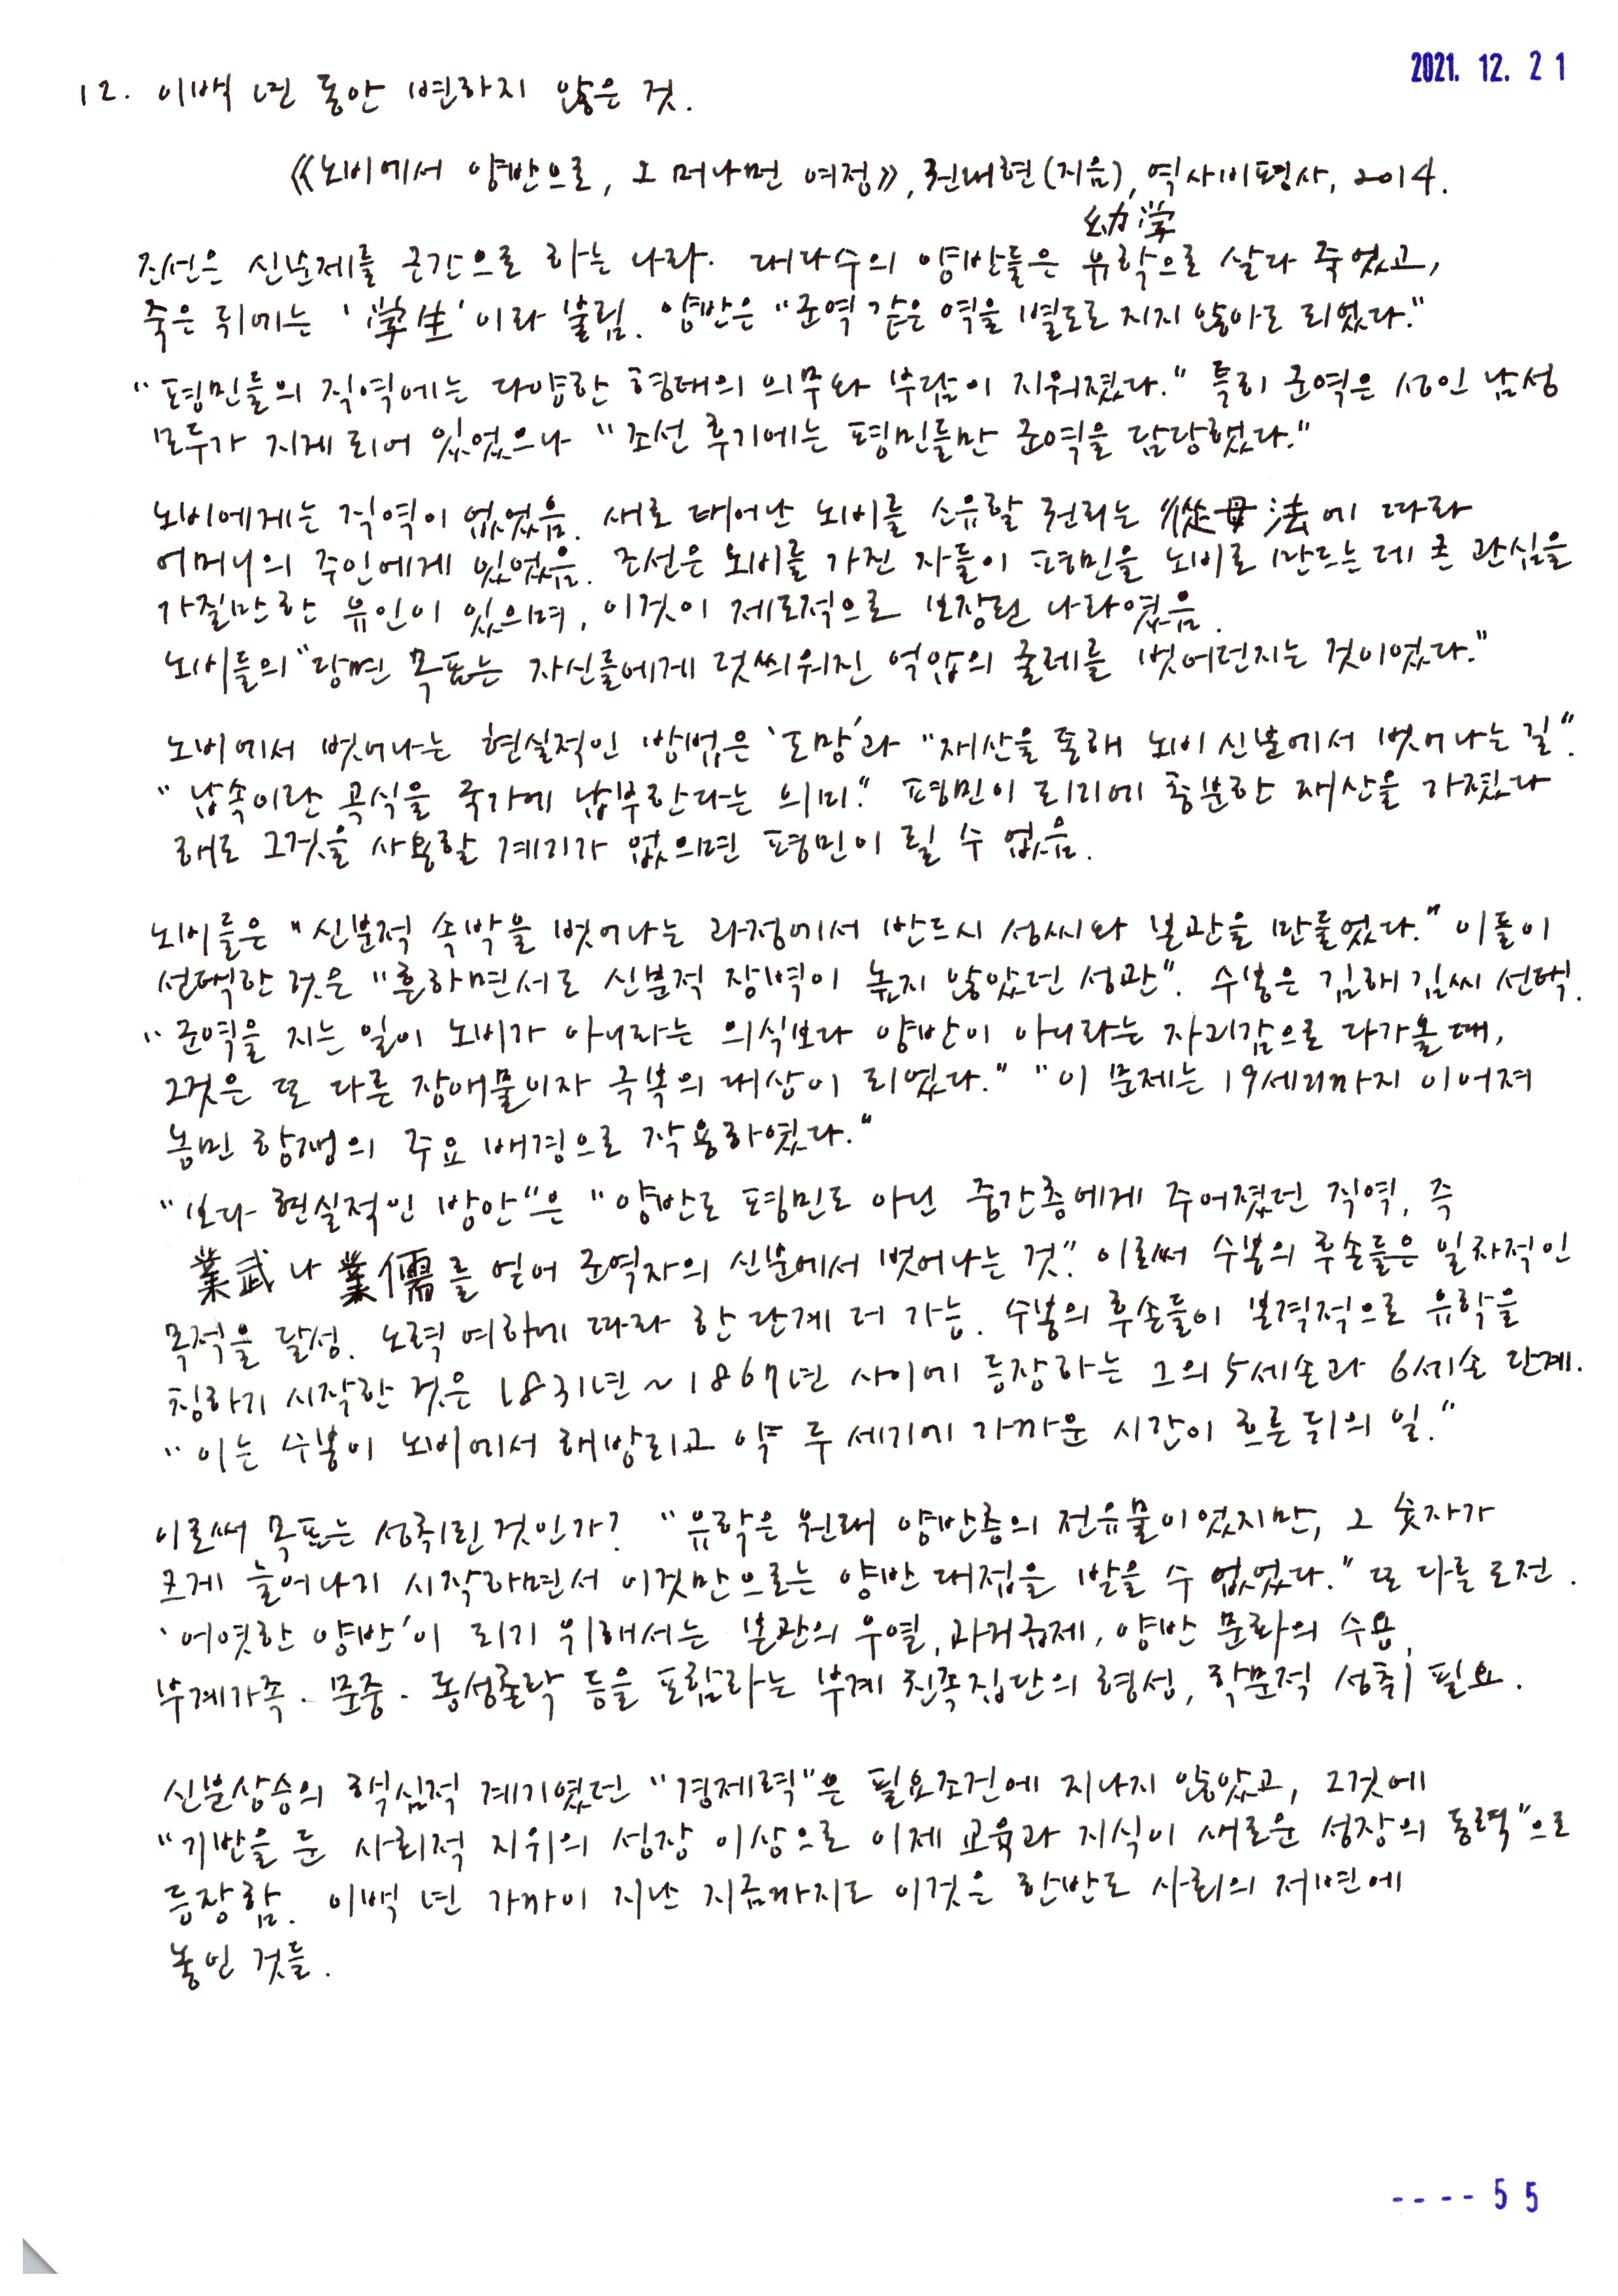 2021. 12. 21
12. 이백 년 동안 변하지 않은 것.
《노비에서 양반으로, 그 머나먼 여정》, 권내현(지음), 역사비평사, 2014.
幼学
조선은 신분제를 근간으로 하는 나라. 대다수의 양반들은 유학으로 살다 죽었고,
죽은 뒤에는 '学生'이라 불림. 양반은 "군역 같은 역을 별도로 지지 않아도 되었다."
"평민들의 직역에는 다양한 형태의 의무와 부담이 지워졌다." 특히 군역은 성인 남성
모두가 지게 되어 있었으나 "조선 후기에는 평민들만 군역을 담당했다."
노비에게는 직역이 없었음. 새로 태어난 노비를 소유할 권리는 從母法에 따라
어머니의 주인에게 있었음. 조선은 노비를 가진 자들이 평민을 노비로 만드는 데 큰 관심을
가질만한 유인이 있으며, 이것이 제도적으로 보장된 나라였음.
노비들의 "당면 목표는 자신들에게 덧씌워진 억압의 굴레를 벗어던지는 것이었다."
노비에서 벗어나는 현실적인 방법은 '도망'과 "재산을 통해 노비 신분에서 벗어나는 길".
"납속이란 곡식을 국가에 납부한다는 의미." 평민이 되기에 충분한 재산을 가졌다
해도 그것을 사용할 계기가 없으면 평민이 될 수 없음.
노비들은 "신분적 속박을 벗어나는 과정에서 반드시 성씨와 본관을 만들었다." 이들이
선택한 것은 "흔하면서도 신분적 장벽이 높지 않았던 성관". 수봉은 김해 김씨 선택.
"군역을 지는 일이 노비가 아니라는 의식보다 양반이 아니라는 자괴감으로 다가올 때,
그것은 또 다른 장애물이자 극복의 대상이 되었다." "이 문제는 19세기까지 이어져
농민 항쟁의 주요 배경으로 작용하였다."
"보다 현실적인 방안"은 "양반도 평민도 아닌 중간층에게 주어졌던 직역, 즉
業武나 業儒를 얻어 군역자의 신분에서 벗어나는 것". 이로써 수봉의 후손들은 일차적인
목적을 달성. 노력 여하에 따라 한 단계 더 가능. 수봉의 후손들이 본격적으로 유학을
칭하기 시작한 것은 1831년~1867년 사이에 등장하는 그의 5세손과 6세손 단계.
"이는 수봉이 노비에서 해방되고 약 두 세기에 가까운 시간이 흐른 뒤의 일."
이로써 목표는 성취된 것인가? "유학은 원래 양반층의 전유물이었지만, 그 숫자가
크게 늘어나기 시작하면서 이것만으로는 양반 대접을 받을 수 없었다." 또 다른 도전.
'어엿한 양반'이 되기 위해서는 본관의 우열, 과거급제, 양반 문화의 수용,
부계가족·문중·동성촌락 등을 포함하는 부계 친족집단의 형성, 학문적 성취 필요.
신분상승의 핵심적 계기였던 "경제력"은 필요조건에 지나지 않았고, 그것에
"기반을 둔 사회적 지위의 성장 이상으로 이제 교육과 지식이 새로운 성장의 동력"으로
등장함. 이백 년 가까이 지난 지금까지도 이것은 한반도 사회의 저변에
놓인 것들.
---- 55